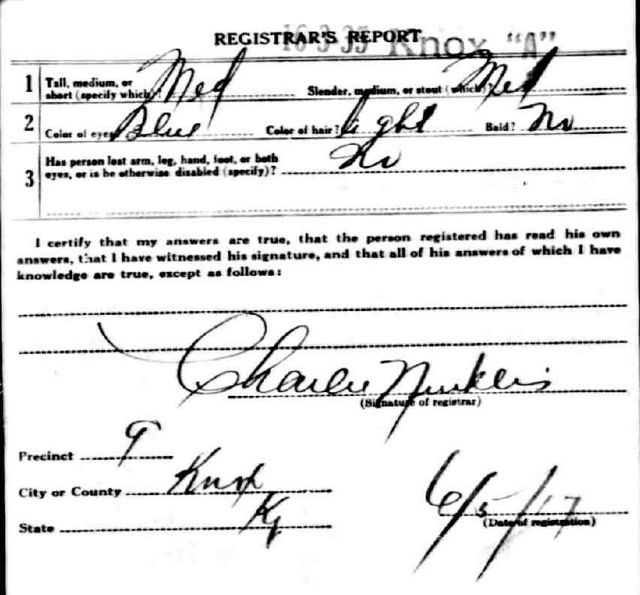 REGISTRAR'S REPORT
16-3-35 Knox "A"
1 Tall, medium, or short (specify which)? Med Slender, medium, or stout (which)? Med
2 Color of eyes Blue Color of hair? light Bald? No
3 Has person lost arm, leg, hand, foot, or both eyes, or is he otherwise disabled (specify)? No
I certify that my answers are true, that the person registered has read his own
answers, that I have witnessed his signature, and that all of his answers of which I have
knowledge are true, except as follows:
Charlie
(Signature of registrar)
Precinct 9
City or County Knox
State Ky
6/5/17
(Date of registration)